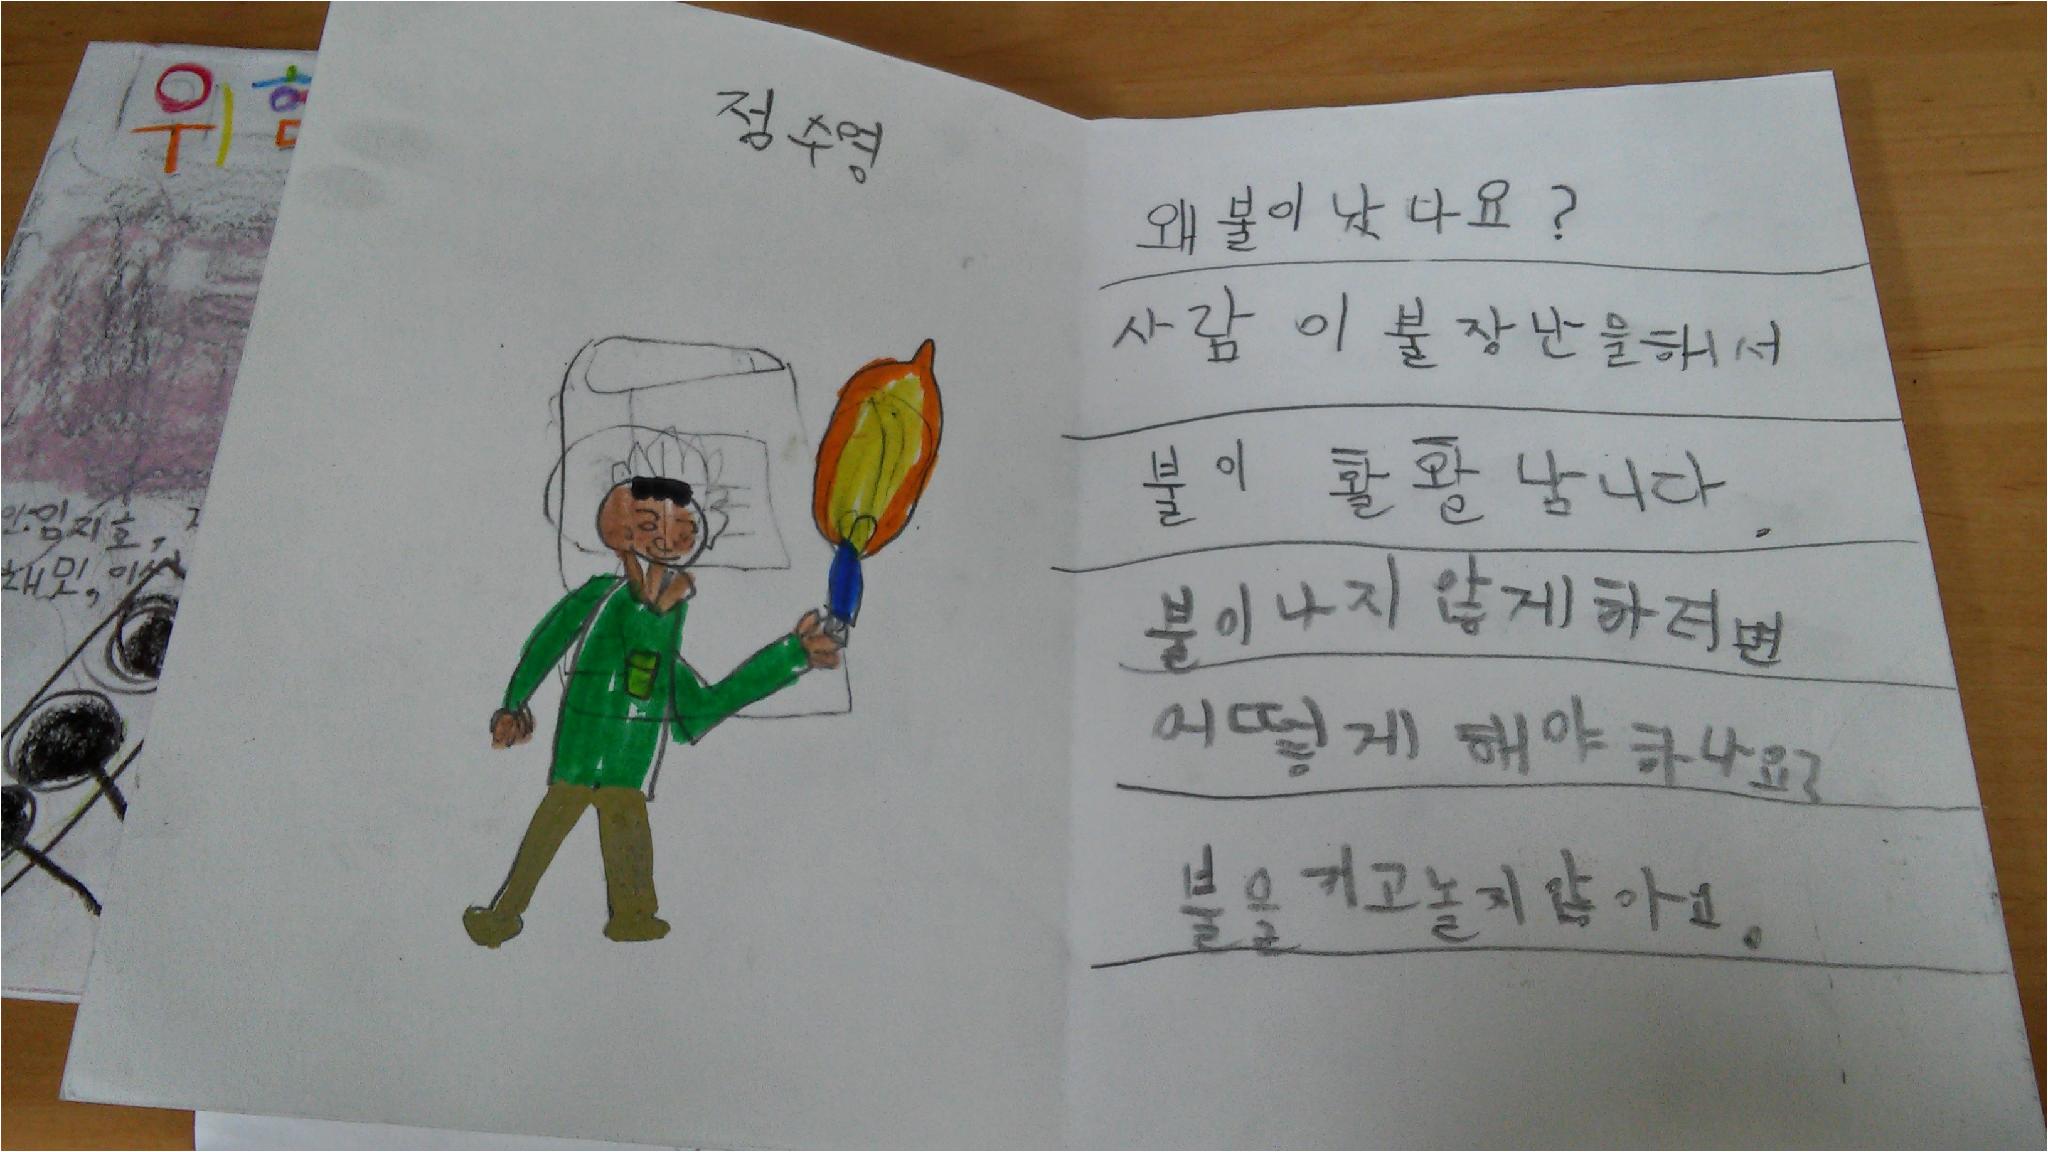 위험
인:임지호,
해민, 이
정수영
왜 불이 났나요?
사람이 불장난을해서
불이 활활 남니다.
불이나지 않게하려면
어떻게 해야 하나요?
불을 키고놀지 않아요.